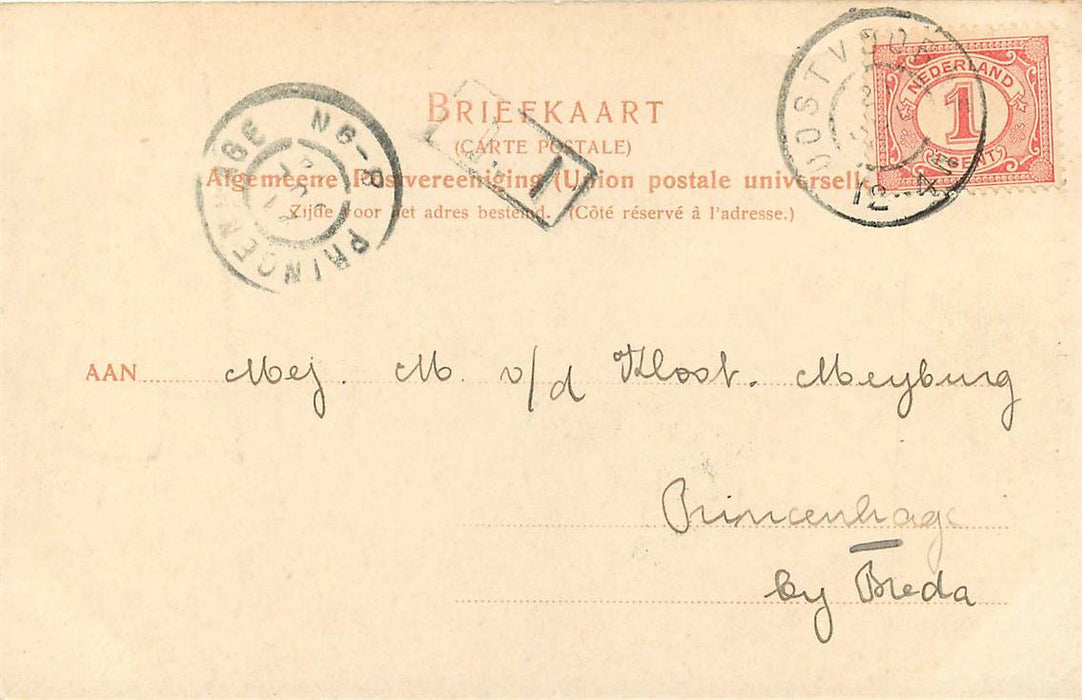 BRIEFKAART
(CARTE POSTALE)
Algemeene Postvereeniging (Union postale universelle)
Zijde voor het adres bestemd. (Côté réservé à l'adresse.)
NEDERLAND
1
CENT
OOSTVOO
12-4
N6-8
PRINCENHAGE
1
AAN Mej. M. v/d Klost. Meyburg
Princenhage
by Breda